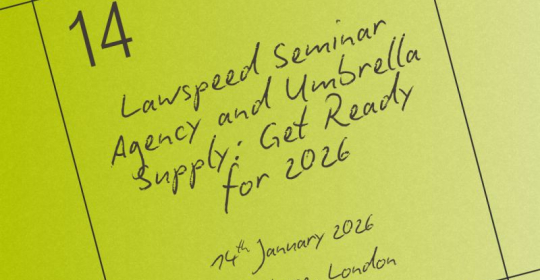 14
Lawspeed Seminar
Agency and Umbrella
Supply: Get Ready
for 2026
14th January 2026
London